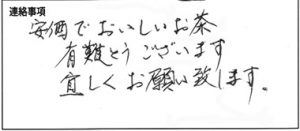 連絡事項
安価でおいしいお茶
有難とうございます
宜しくお願い致します。